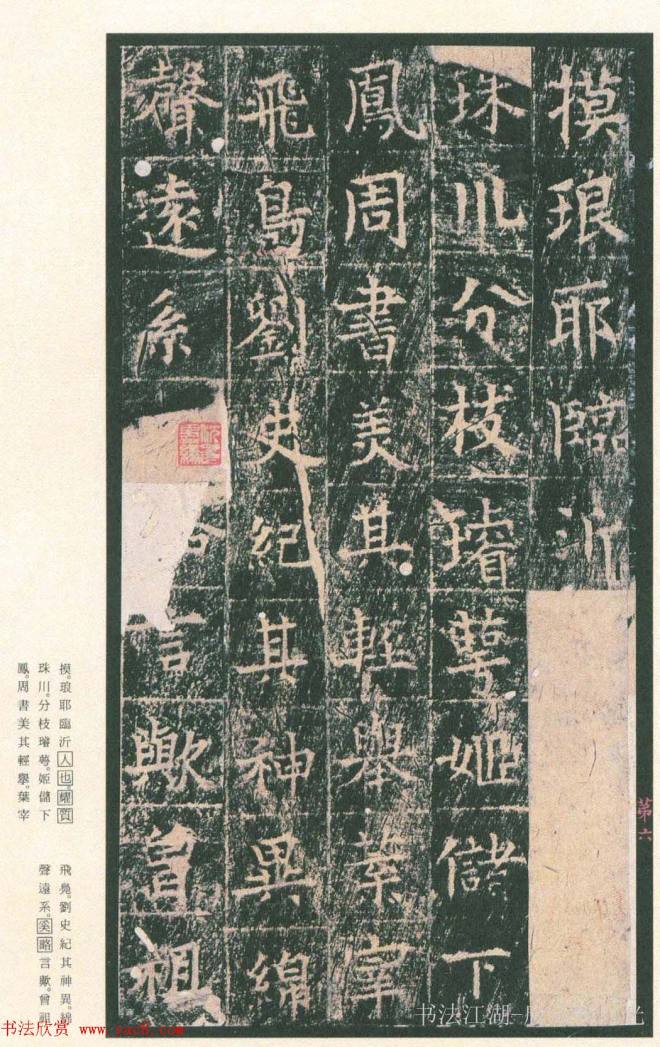 摸琅耶臨沂
珠川分枝璿萼姬儲下
鳳周書美其輕舉葉宰
飛鳧劉史紀其神異綿
聲遠系言歟曽祖
第六
摸。瑯耶臨沂人也。耀質
珠川。分枝璿萼。姬儲下
鳳。周書美其輕舉。葉宰
飛鳧。劉史紀其神異。綿
聲遠系。奚略言歟。曾祖
书法江湖
书法欣赏 www.yac8.com